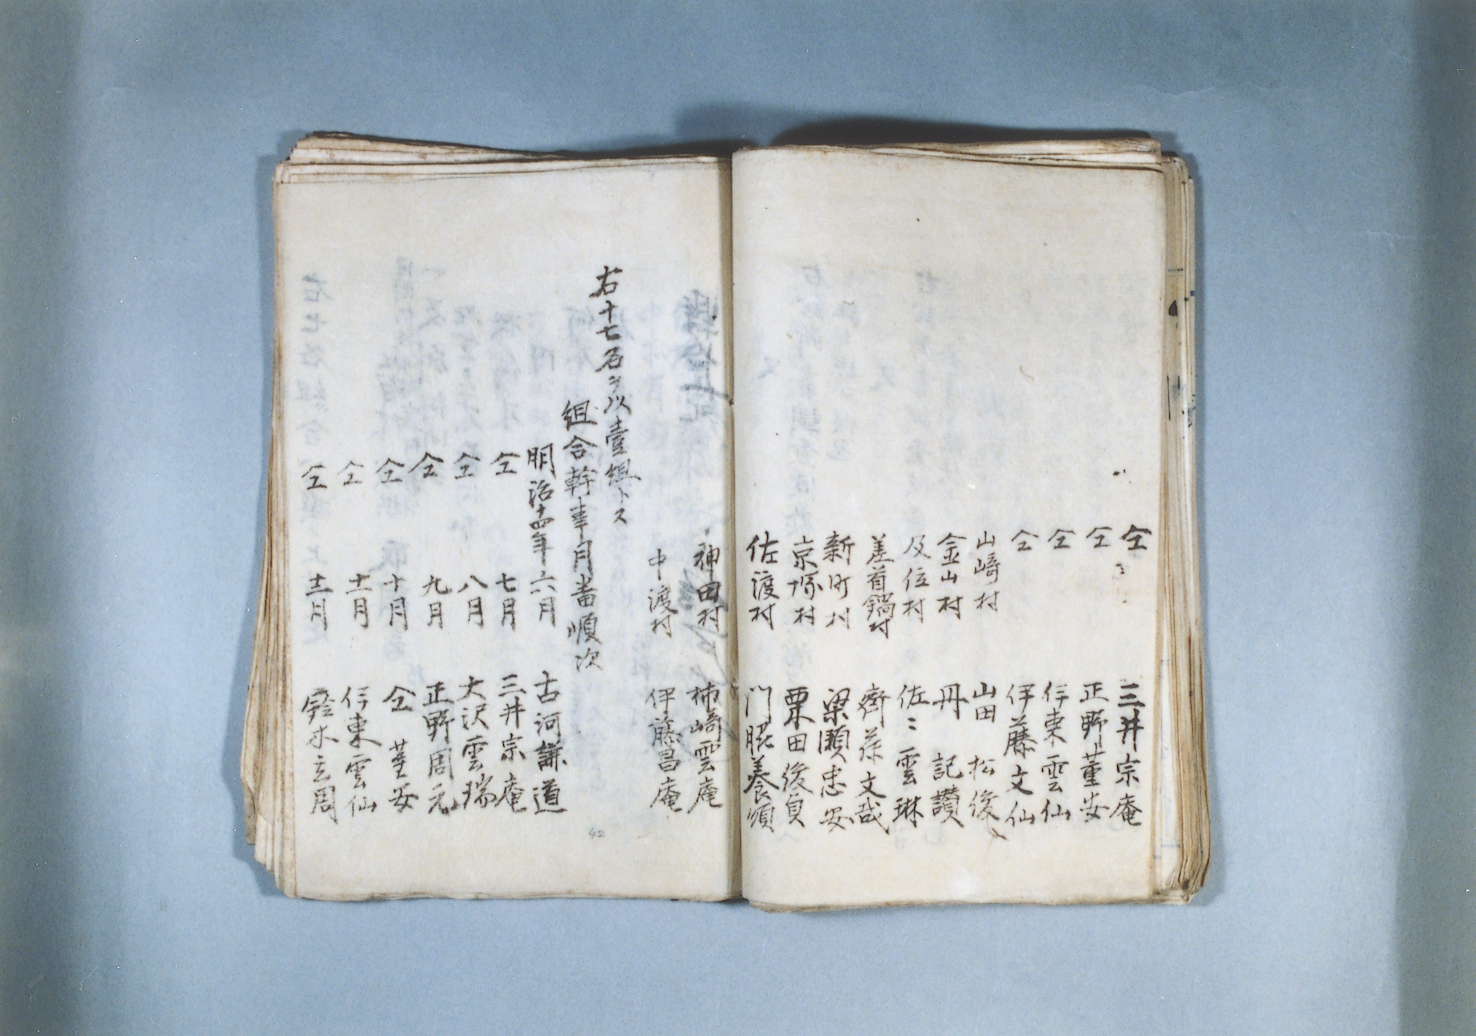 仝 三井宗庵
仝 正野菫安
仝 伊東雲仙
仝 伊藤文仙
山崎村 山田松俊
金山村 丹記讃
及位村 佐々雲琳
差首鍋村 齊藤文哉
新町村 梁瀬忠安
京塚村 栗田俊貞
佐渡村 門脇養順
神田村 柿崎雲庵
中渡村 伊藤昌庵
右十七名ヲ以壹組トス
組合幹事月番順次
明治十四年六月 古河謙道
仝 七月 三井宗庵
仝 八月 大沢雲瑞
仝 九月 正野周元
仝 十月 仝菫安
仝 十一月 伊東雲仙
仝 十二月 鈴木玄周
42